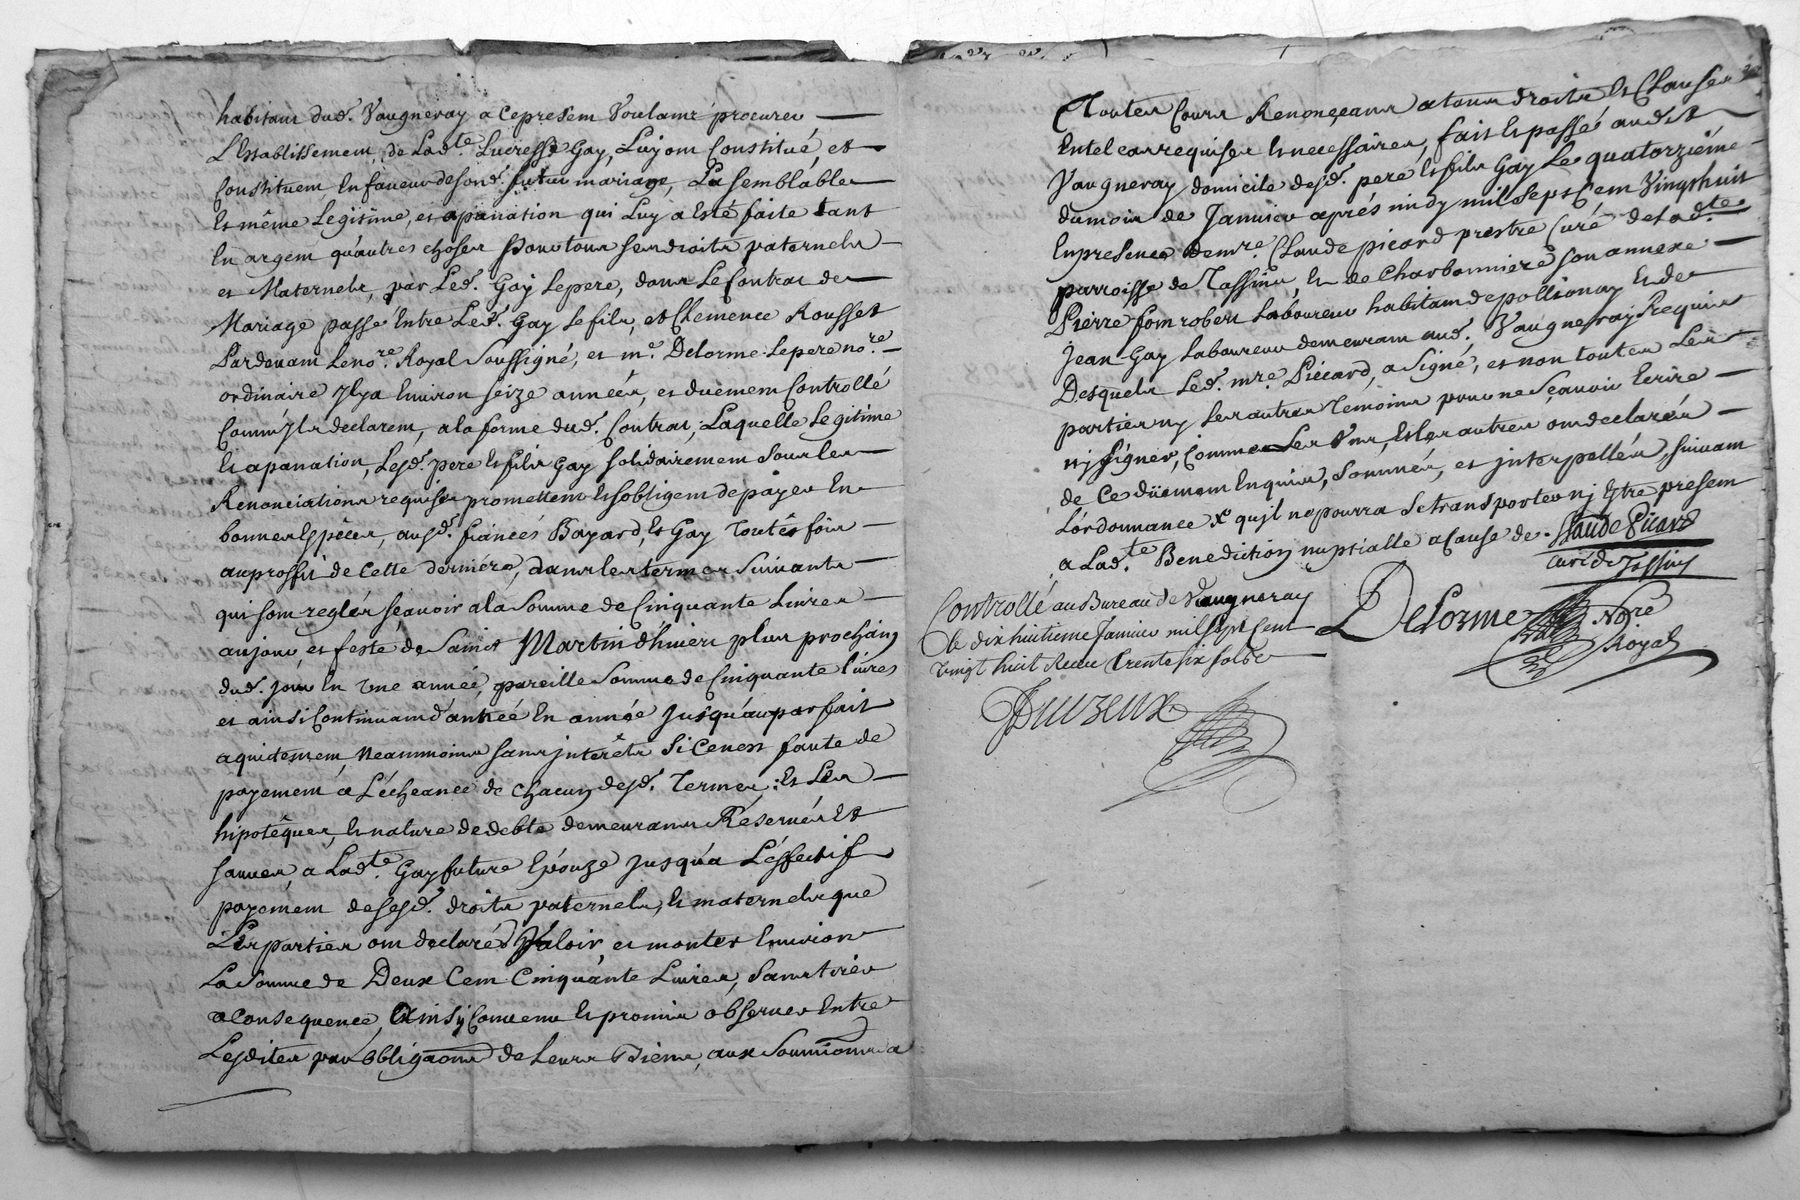 habitant dud. Vaugneray a cepresent Voulant procurer
L'Establissement, de Lad.te Lucresse Gay, Luy ont Constitué, et
Constituent En faveur deson d. futur mariage, La semblable
Et même Legitime, et apanation qui Luy a Esté faite tant
En argent qu'autres choses pour tous ses droits paternels
et Maternels, par Led. Gay Lepere, dans Le Contrat de
Mariage passé Entre Led. Gay Le fils, et Clemence Rousset
Pardevant Leno.re Royal Soussigné, et m.e Delorme Lepere no.re
ordinaire Ilya Environ seize années, et duement Controllé
Comm'Ils declarent, a la forme dud. Contrat, Laquelle Legitime
Et apanation, Lesd. pere Et fils Gay solidairement sous les
Renonciations requises promettent Et sobligent de payer En
bonnes Espèces, ausd. fiancés Bayard, Et Gay toutes fois
auproffit de Cette derniére, dans les termes suivants
qui sont reglés sçavoir a la Somme de Cinquante Livres
aujour, et feste de Saint Martin d'hiver plus prochain
dud. jour En Une année, pareille Somme de Cinquante livres
et ainsi Continuant d'année En année Jusqu'auparfait
aquitement, Neanmoins sans jnterêts Si Cenest faute de
payement a L'écheance de chacun desd. Termes; Et Les
hipotêques, Et nature de debte demeurants Réservés Et
sauves, a Lad.te Gay future Epouze Jusqu'a L'effectif
payement desesd. droits paternels, Et maternels que
Les parties ont declaré Valoir, et monter Environ
La Somme de Deux Cent Cinquante Livres, Sans tirer
a Consequence, Ainsy Convenu Et promis observer Entre
Lesdites par obligaõns de Leurs Biens, aux Soumiõns a
Toutes Cours Renonçeants atous droits Et Clauses
Entel cas requises Et necessaires, fait Et passé audit
Vaugneray domicile desd. pere Et fils Gay Le quatorziéme
dumois de Janvier aprés midy mil Sept Cent Vingt huit
Enpresence de m.re Claude picard prestre Curé de Lad.te
parroisse de Tassins, Et de Charbonniere son annexe
Pierre fontrobert Laboureur habitant de pollionay Et de
Jean Gay Laboureur demeurant aud. Vaugneray Requis
Desquels Led. m.re Piccard, a Signé, et non toutes Les
parties ny Les autres Temoins pour ne Sçavoir Ecrire
ny signer, Comme Les Uns, Et Les autres ont declarés
de Ce düement Enquis, Sommés, et jnterpellés, suivant
L'ordonnance & qu'il ne pourra Se transporter ny Estre present
a Lad.te Benediction nuptialle a Cause de
Claude Picard
curé de Tassins
Delorme No.re
Royal
Controllé au Bureau de Vaugneray
le dix huitieme Janvier mil sept cent
vingt huit Recu trente six sols
Duvzeux